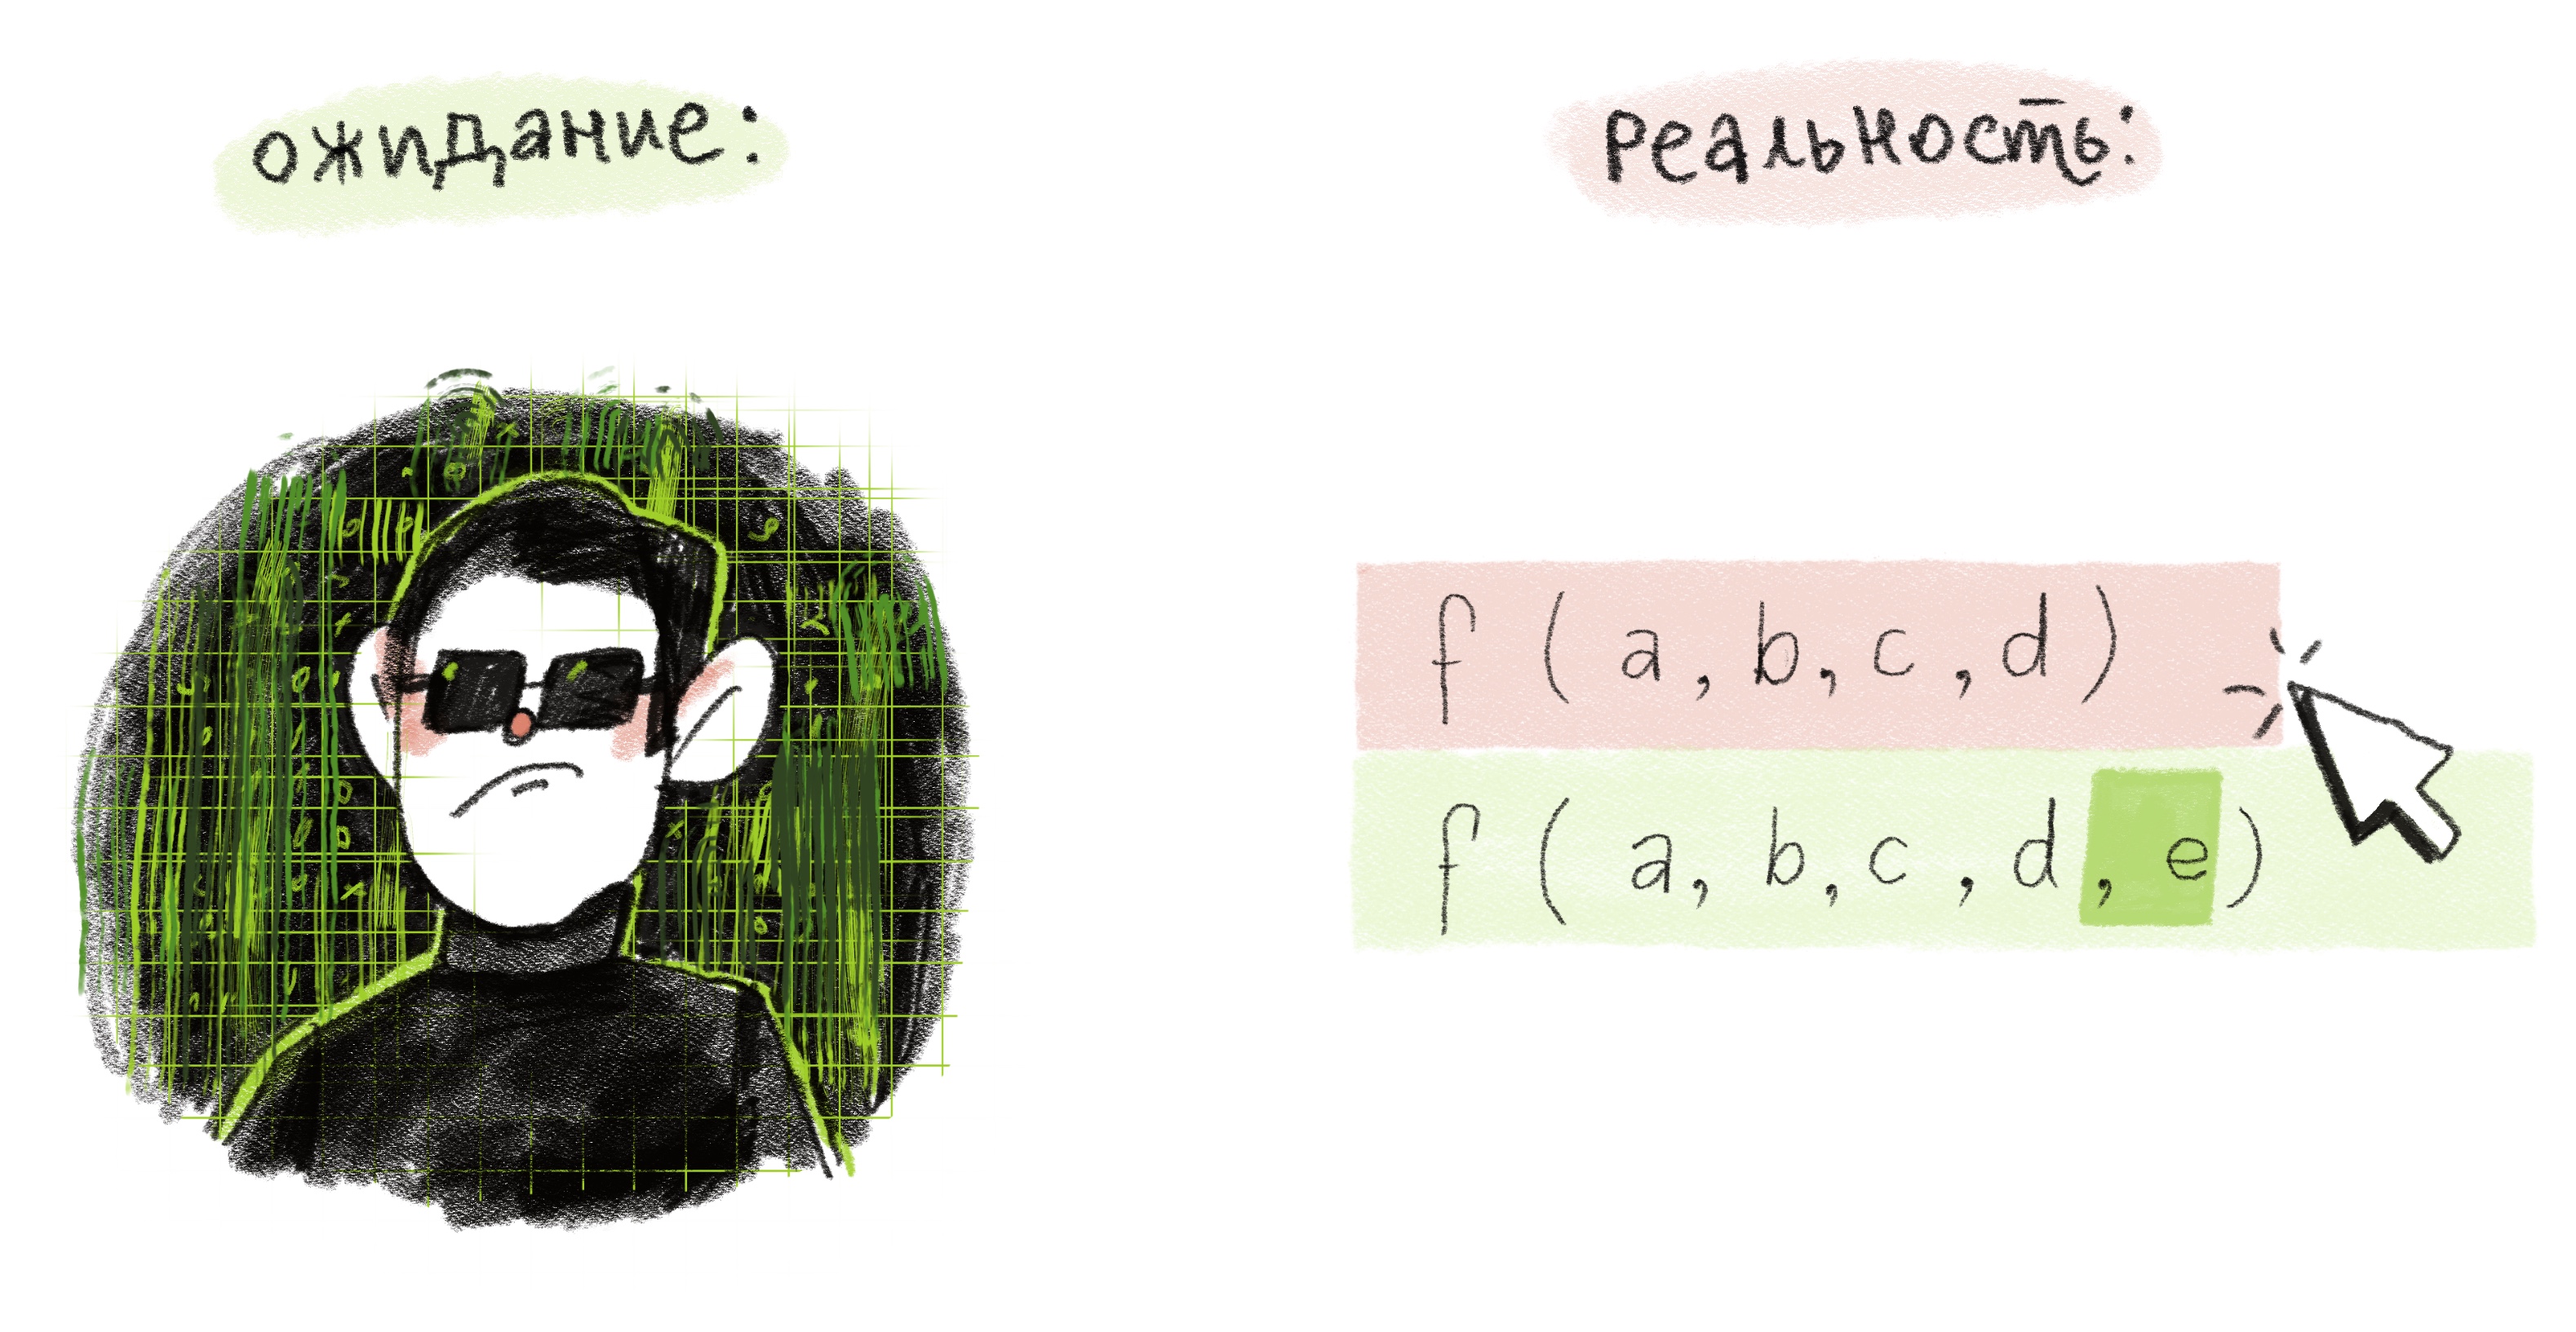 ожидание:
реальность:
f ( a , b , c , d )
f ( a , b , c , d , e )